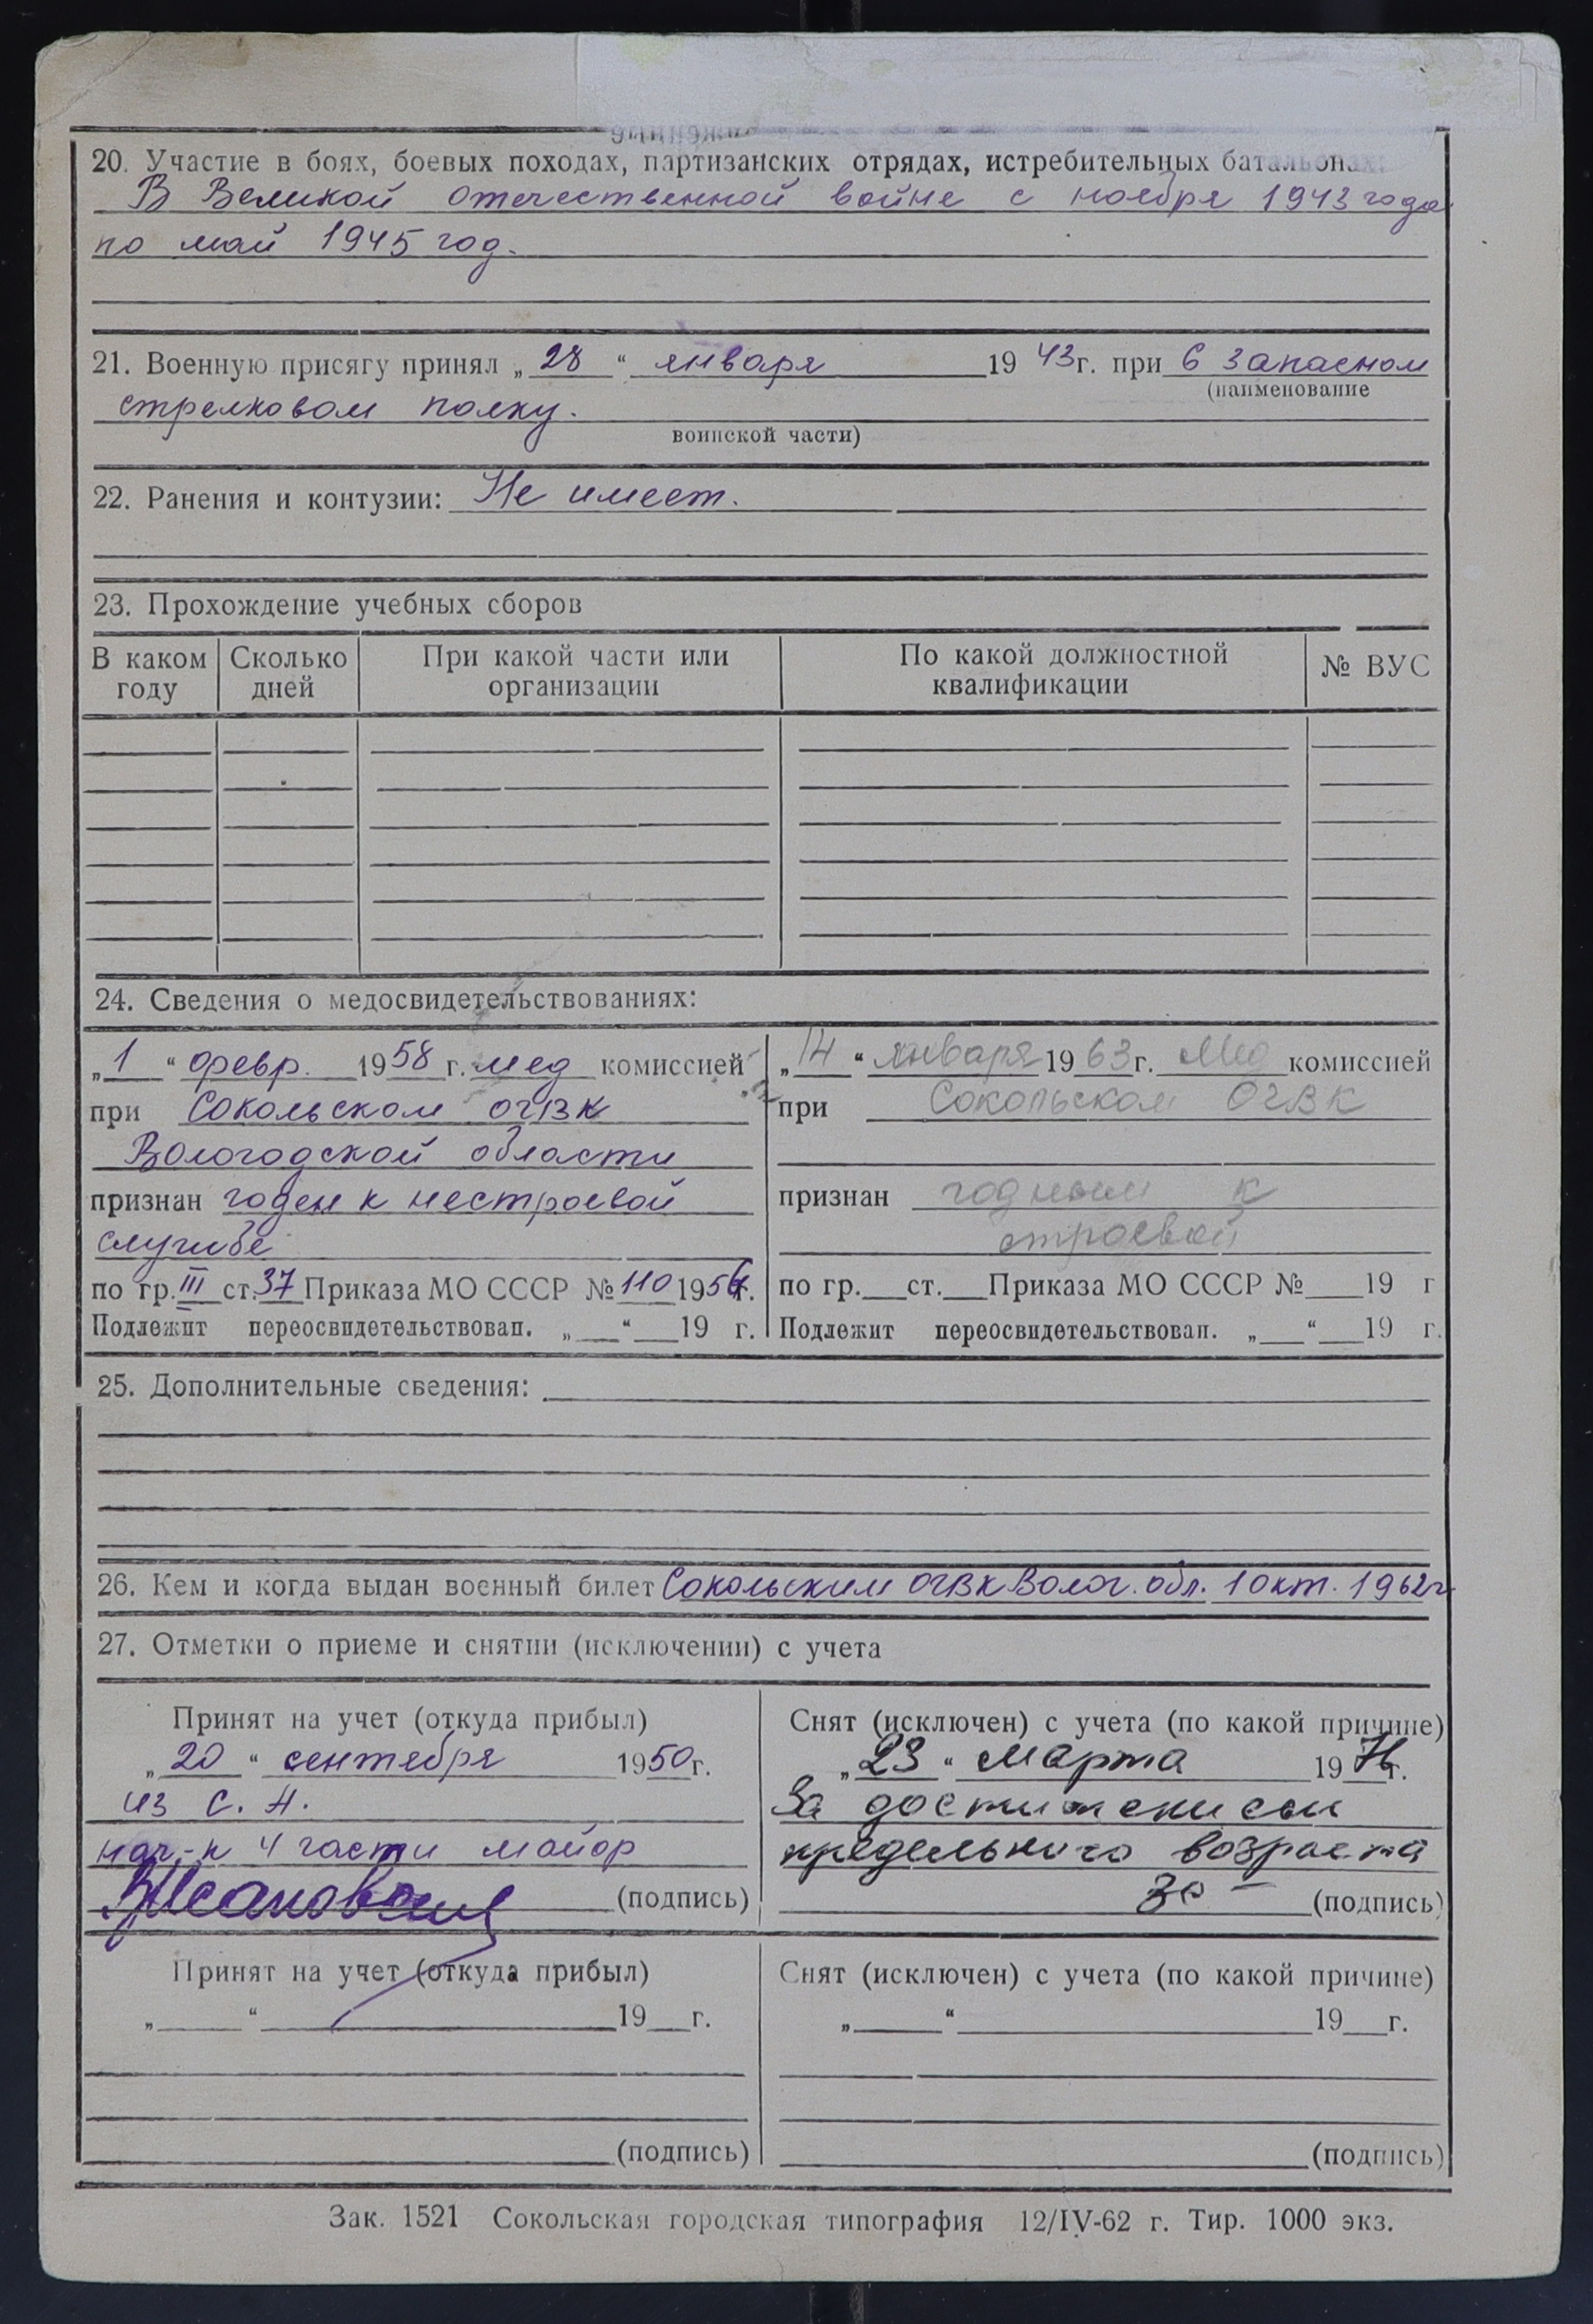 20. Участие в боях, боевых походах, партизанских отрядах, истребительных батальонах:
В Великой Отечественной войне с ноября 1943 года
по май 1945 год.
21. Военную присягу принял „28“ января 1943г. при 6 запасном
(наименование
стрелковом полку.
воинской части)
22. Ранения и контузии: Не имеет.
23. Прохождение учебных сборов
В каком году Сколько дней При какой части или организации По какой должностной квалификации № ВУС
24. Сведения о медосвидетельствованиях:
„1“ февр. 1958 г. мед комиссией
при Сокольском ОГВК
Вологодской области
признан годен к нестроевой
службе
по гр. III ст. 37 Приказа МО СССР № 110 1956г.
Подлежит переосвидетельствован. „ “ 19 г.
„14“ января 1963г. Мед комиссией
при Сокольском ОГВК
признан годным к
строевой
по гр. ст. Приказа МО СССР № 19 г
Подлежит переосвидетельствован. „ “ 19 г.
25. Дополнительные сведения:
26. Кем и когда выдан военный билет Сокольским ОГВК Волог. обл. 1 окт. 1962г
27. Отметки о приеме и снятии (исключении) с учета
Принят на учет (откуда прибыл)
„20“ сентября 1950г.
из С. А.
нач-к 4 части майор
(подпись)
Снят (исключен) с учета (по какой причине)
„23“ марта 1976г.
За достижением
предельного возраста
(подпись)
Принят на учет (откуда прибыл)
„ “ 19 г.
(подпись)
Снят (исключен) с учета (по какой причине)
„ “ 19 г.
(подпись)
Зак. 1521 Сокольская городская типография 12/IV-62 г. Тир. 1000 экз.